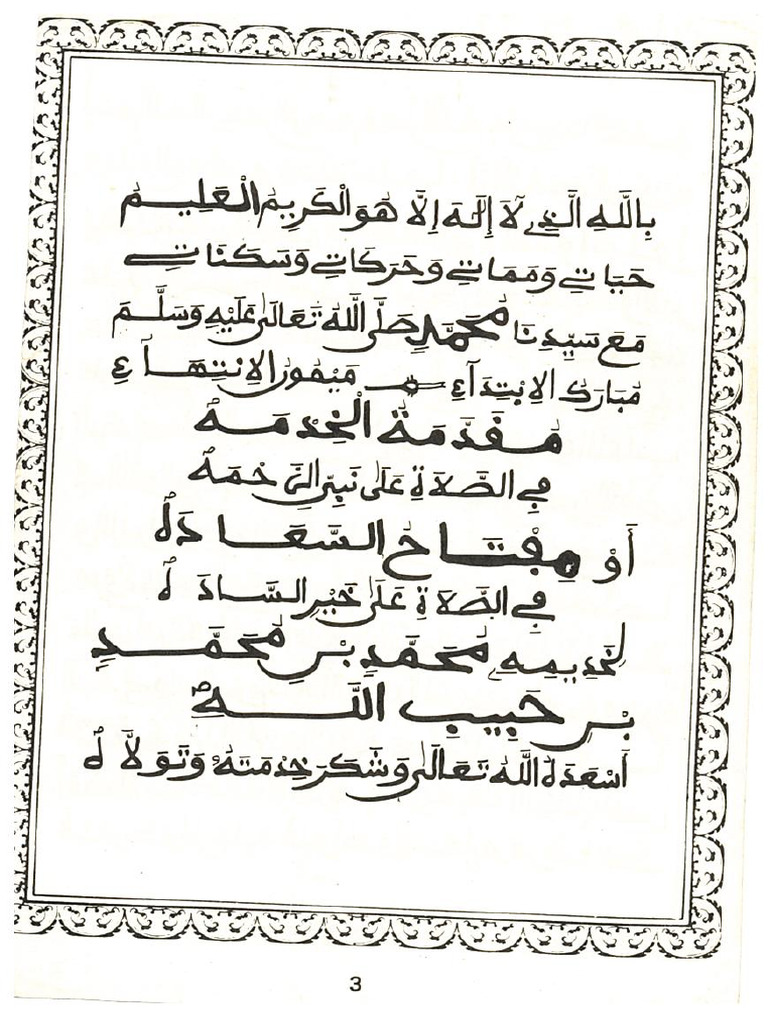 بِاللَّهِ الَّذِي لَا إِلَهَ إِلَّا هُوَ الْكَرِيمُ الْعَلِيمُ
حَيَاتِي وَمَمَاتِي وَحَرَكَاتِي وَسَكَنَاتِي
مَعَ سَيِّدِنَا مُحَمَّدٍ صَلَّى اللَّهُ تَعَالَى عَلَيْهِ وَسَلَّمَ
مُبَارَكُ الِابْتِدَآءِ مَيْمُونُ الِانْتِهَآءِ
مُقَدِّمَةُ الْخِدْمَهْ
فِي الصَّلَاةِ عَلَى نَبِيِّ الرَّحْمَهْ
أَوْ مِفْتَاحُ السَّعَادَهْ
فِي الصَّلَاةِ عَلَى خَيْرِ السَّادَهْ
لِخَدِيمِهِ مُحَمَّدِ بْنِ مُحَمَّدِ
بْنِ حَبِيبِ اللَّهِ
أَسْعَدَهُ اللَّهُ تَعَالَى وَشَكَرَ خِدْمَتَهُ وَتَوَلَّاهُ
3